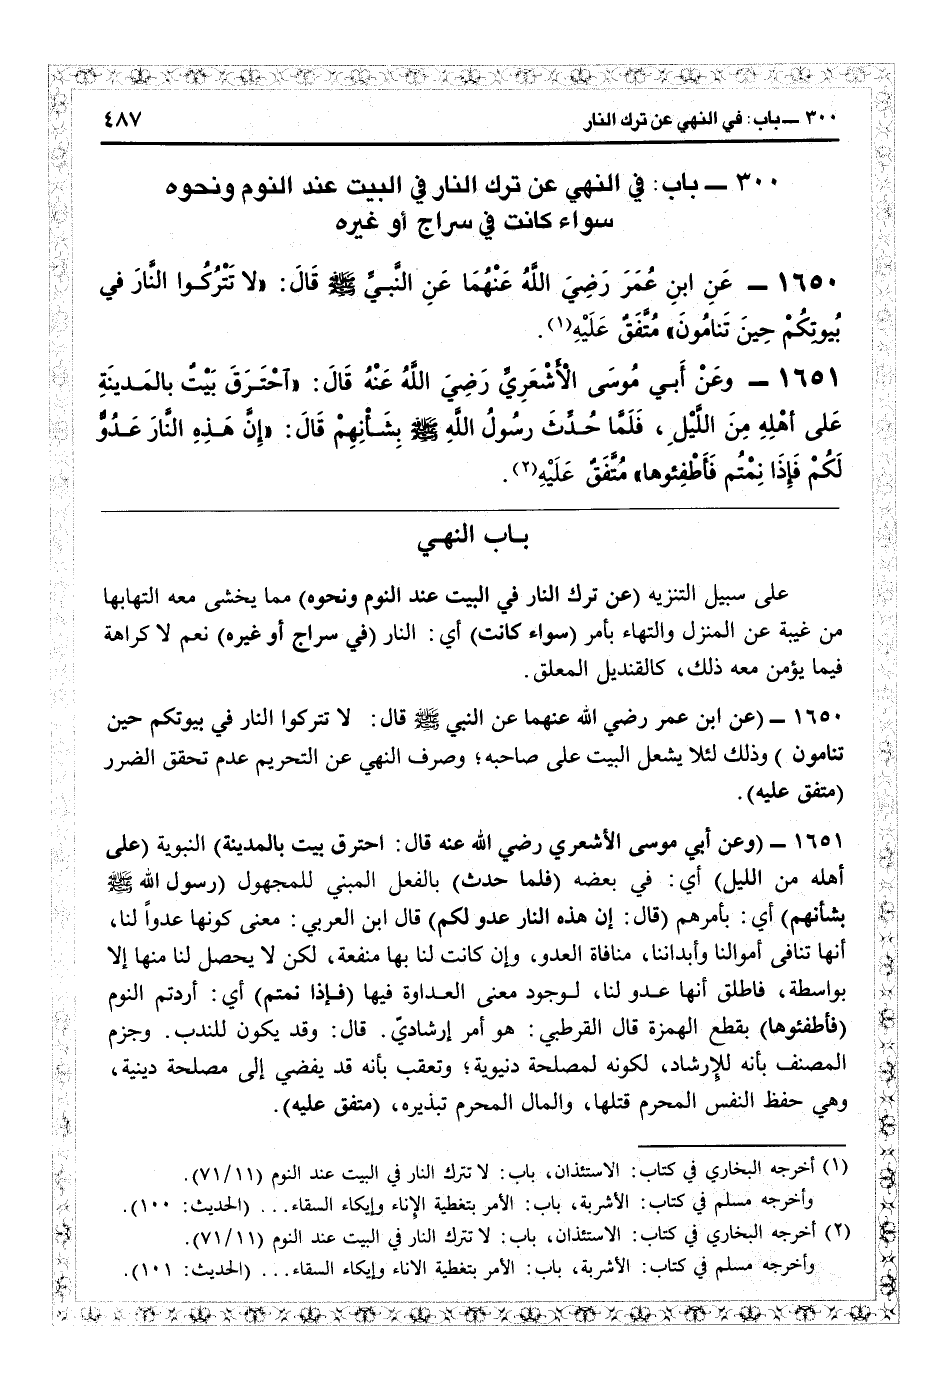 ٣٠٠ ـ باب: في النهي عن ترك النار ٤٨٧
٣٠٠ ـ باب: في النهي عن ترك النار في البيت عند النوم ونحوه
سواء كانت في سراج أو غيره
١٦٥٠ ـ عَنِ ابنِ عُمَرَ رَضِيَ اللَّهُ عَنْهُمَا عَنِ النَّبيِّ ﷺ قَالَ: «لا تَتْرُكُوا النَّارَ في
بُيوتِكُمْ حِينَ تَنامُونَ» مُتَّفَقٌ عَلَيْهِ(١).
١٦٥١ ـ وعَنْ أَبي مُوسَى الأَشْعَرِيِّ رَضِيَ اللَّهُ عَنْهُ قَالَ: «آحْتَرَقَ بَيْتٌ بالمَدينَةِ
عَلى أهْلِهِ مِنَ اللَّيْلِ، فَلَمَّا حُدِّثَ رسُولُ اللَّهِ ﷺ بِشَأْنِهِمْ قَالَ: «إنَّ هَذِهِ النَّارَ عَدُوٌّ
لَكُمْ فَإذَا نِمْتُم فَأَطْفِئوها» مُتَّفَقٌ عَلَيْهِ(٢).
بـاب النهـي
على سبيل التنزيه (عن ترك النار في البيت عند النوم ونحوه) مما يخشى معه التهابها
من غيبة عن المنزل والتهاء بأمر (سواء كانت) أي: النار (في سراج أو غيره) نعم لا كراهة
فيما يؤمن معه ذلك، كالقنديل المعلق.
١٦٥٠ ـ (عن ابن عمر رضي الله عنهما عن النبي ﷺ قال: لا تتركوا النار في بيوتكم حين
تنامون ) وذلك لئلا يشعل البيت على صاحبه؛ وصرف النهي عن التحريم عدم تحقق الضرر
(متفق عليه).
١٦٥١ ـ (وعن أبي موسى الأشعري رضي الله عنه قال: احترق بيت بالمدينة) النبوية (على
أهله من الليل) أي: في بعضه (فلما حدث) بالفعل المبني للمجهول (رسول الله ﷺ
بشأنهم) أي: بأمرهم (قال: إن هذه النار عدو لكم) قال ابن العربي: معنى كونها عدواً لنا،
أنها تنافى أموالنا وأبداننا، منافاة العدو، وإن كانت لنا بها منفعة، لكن لا يحصل لنا منها إلا
بواسطة، فاطلق أنها عدو لنا، لوجود معنى العداوة فيها (فإذا نمتم) أي: أردتم النوم
(فأطفئوها) بقطع الهمزة قال القرطبي: هو أمر إرشاديّ. قال: وقد يكون للندب. وجزم
المصنف بأنه للإرشاد، لكونه لمصلحة دنيوية؛ وتعقب بأنه قد يفضي إلى مصلحة دينية،
وهي حفظ النفس المحرم قتلها، والمال المحرم تبذيره، (متفق عليه).
(١) أخرجه البخاري في كتاب: الاستئذان، باب: لا تترك النار في البيت عند النوم (٧١/١١).
وأخرجه مسلم في كتاب: الأشربة، باب: الأمر بتغطية الإناء وإيكاء السقاء... (الحديث: ١٠٠).
(٢) أخرجه البخاري في كتاب: الاستئذان، باب: لا تترك النار في البيت عند النوم (٧١/١١).
وأخرجه مسلم في كتاب: الأشربة، باب: الأمر بتغطية الاناء وإيكاء السقاء... (الحديث: ١٠١).